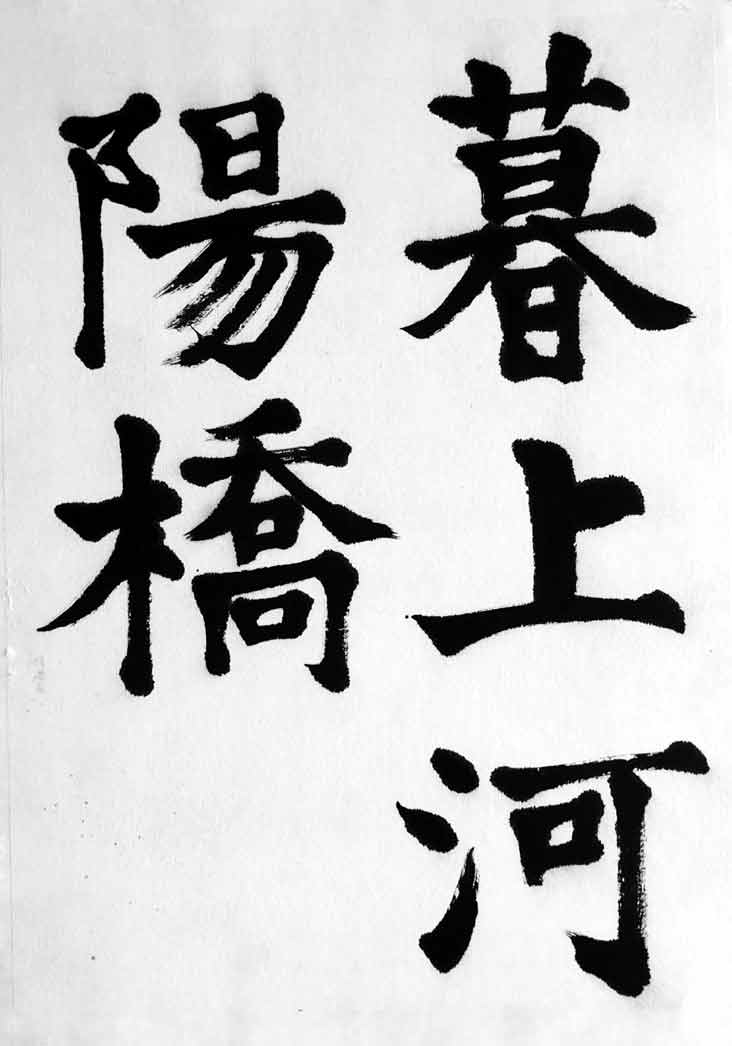 暮上河
陽橋